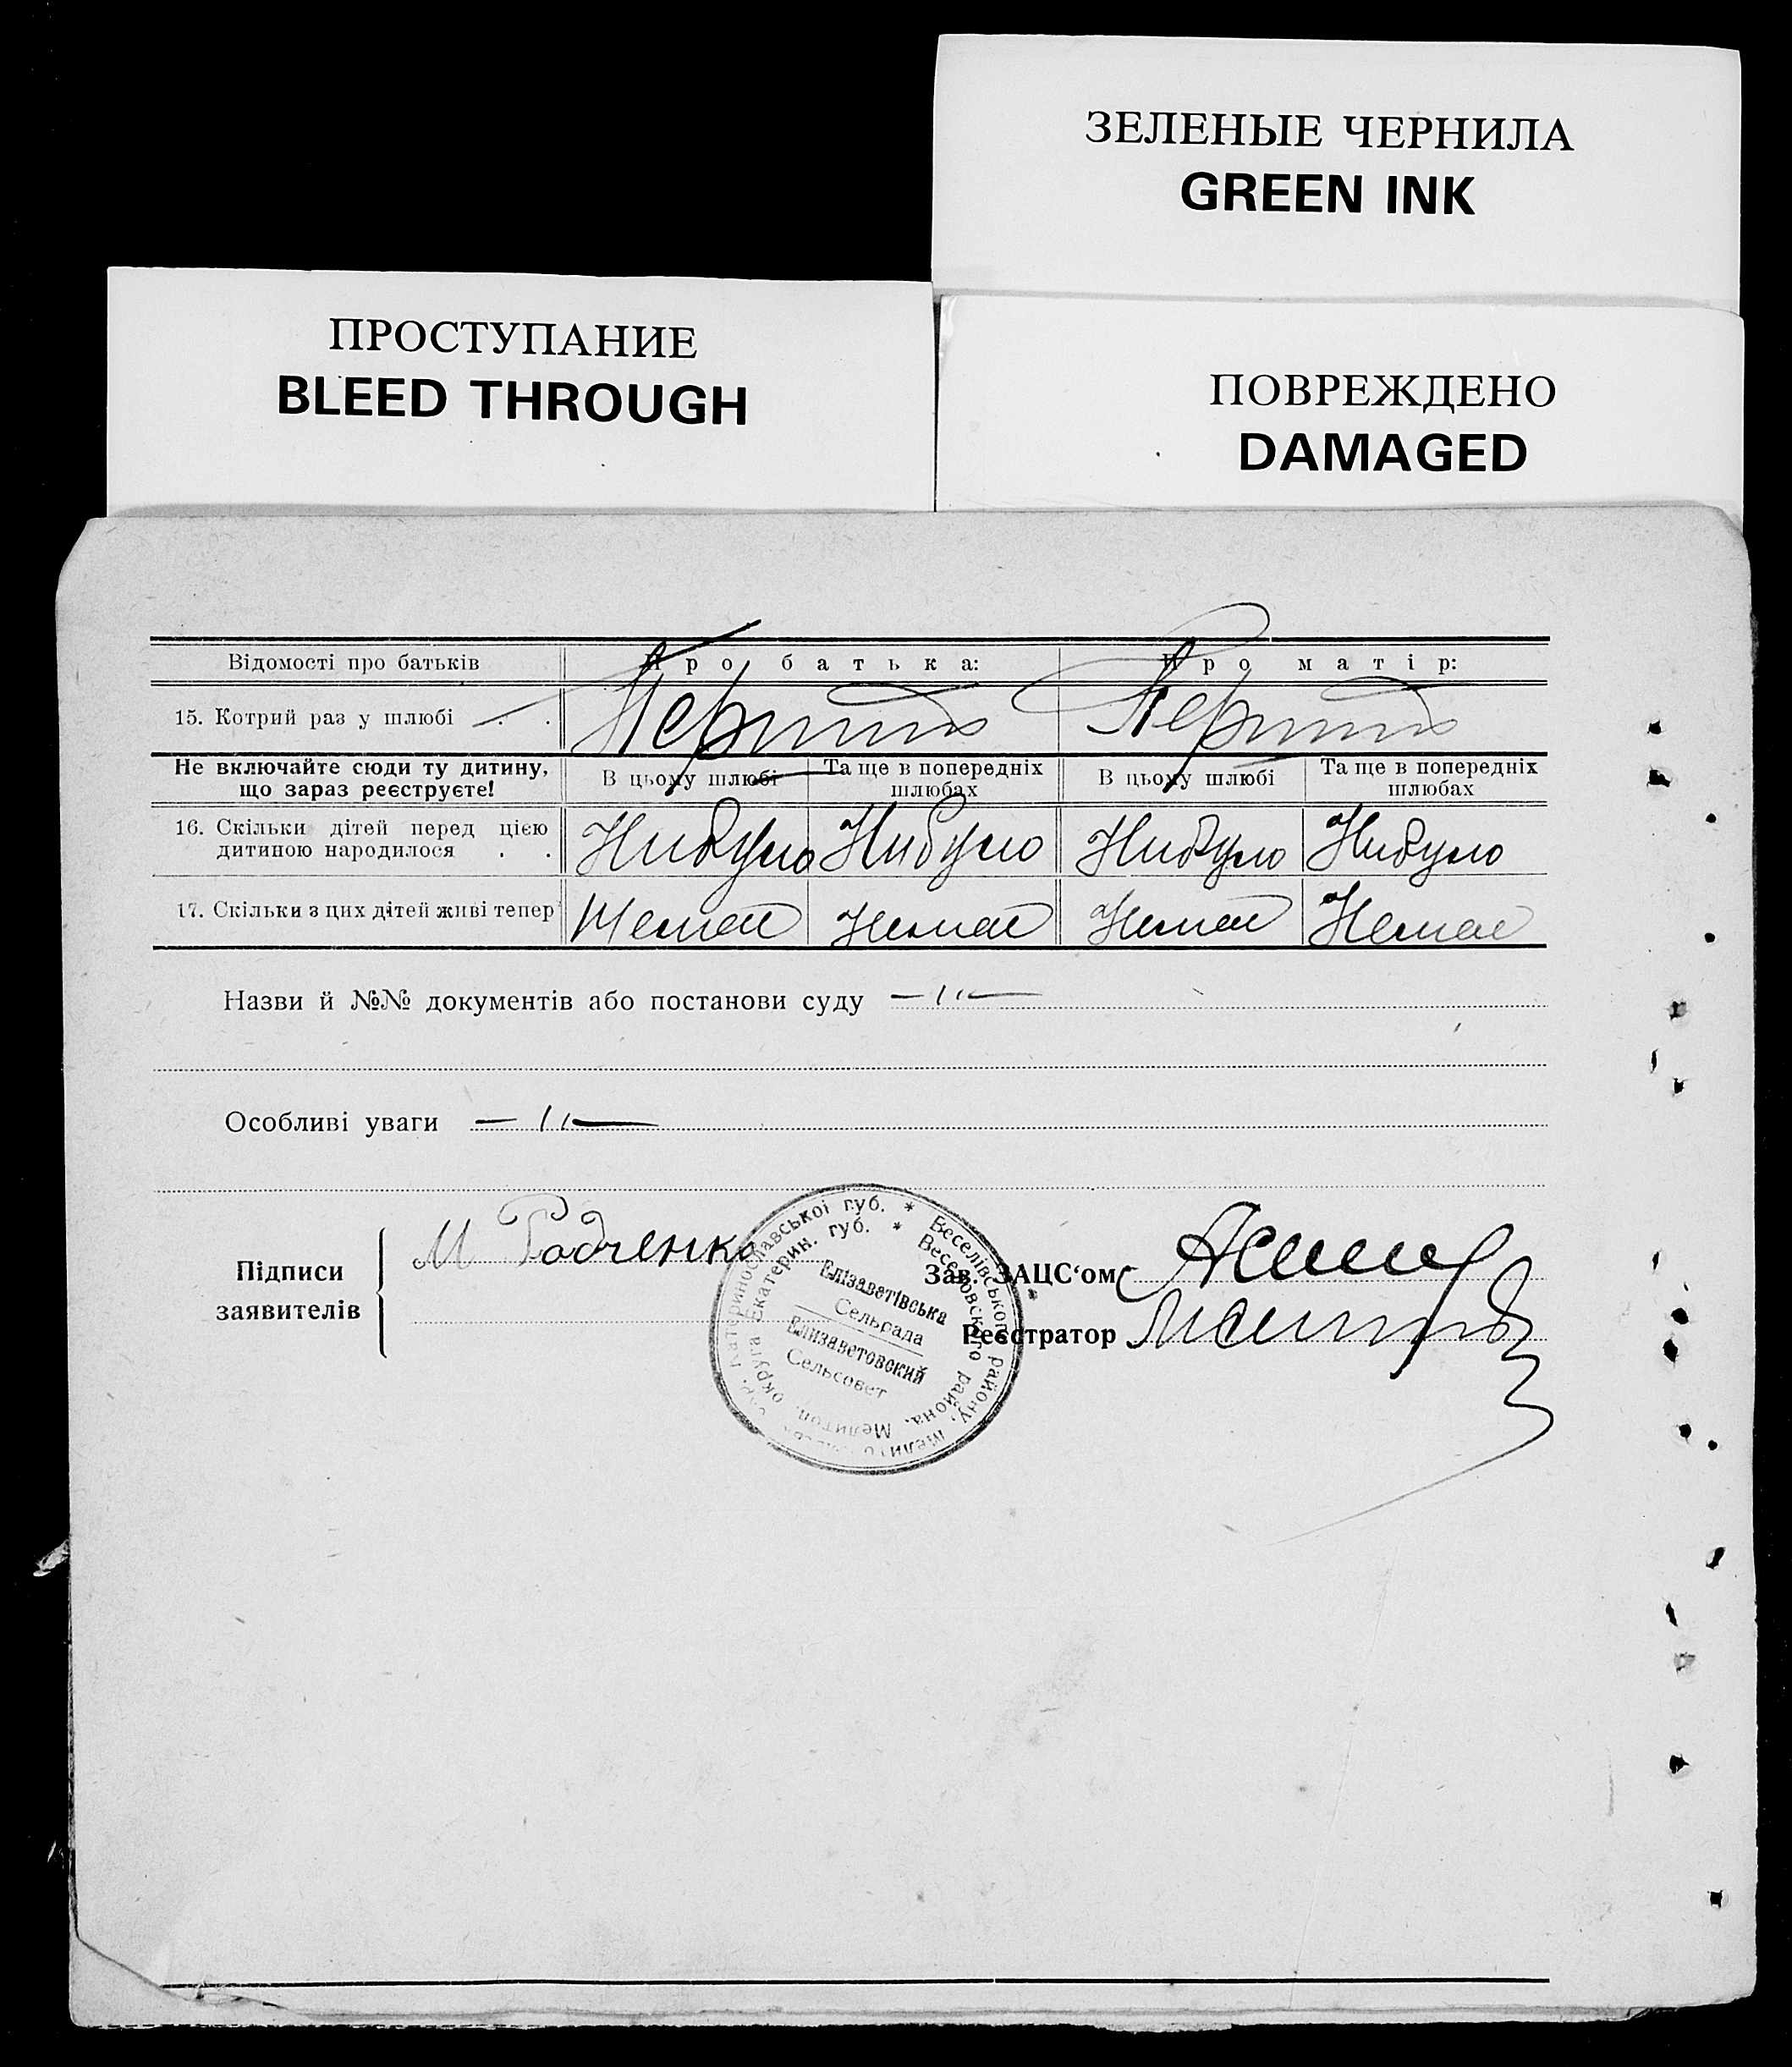 ЗЕЛЕНЫЕ ЧЕРНИЛА
GREEN INK
ПРОСТУПАНИЕ
BLEED THROUGH
ПОВРЕЖДЕНО
DAMAGED
Відомості про батьків Про батька: Про матір:
15. Котрий раз у шлюбі . .
Не включайте сюди ту дитину, що зараз реєструєте! В цьому шлюбі Та ще в попередніх шлюбах В цьому шлюбі Та ще в попередніх шлюбах
16. Скільки дітей перед цією
дитиною народилося . . Нибуло Нибуло Нибуло Нибуло
17. Скільки з цих дітей живі тепер Немає Немає Немає Немає
Назви й №№ документів або постанови суду — 〃 —
Особливі уваги — 〃 —
Підписи
заявителів
М Радченко
Зав. ЗАЦС‘ом
Реєстратор
Катеринославської губ. * Веселівського району, Мелито
округа Екатерин. губ. * Веселовского района, Мелитоп.
Єлізаветівська
Сельрада
Елизаветовский
Сельсовет